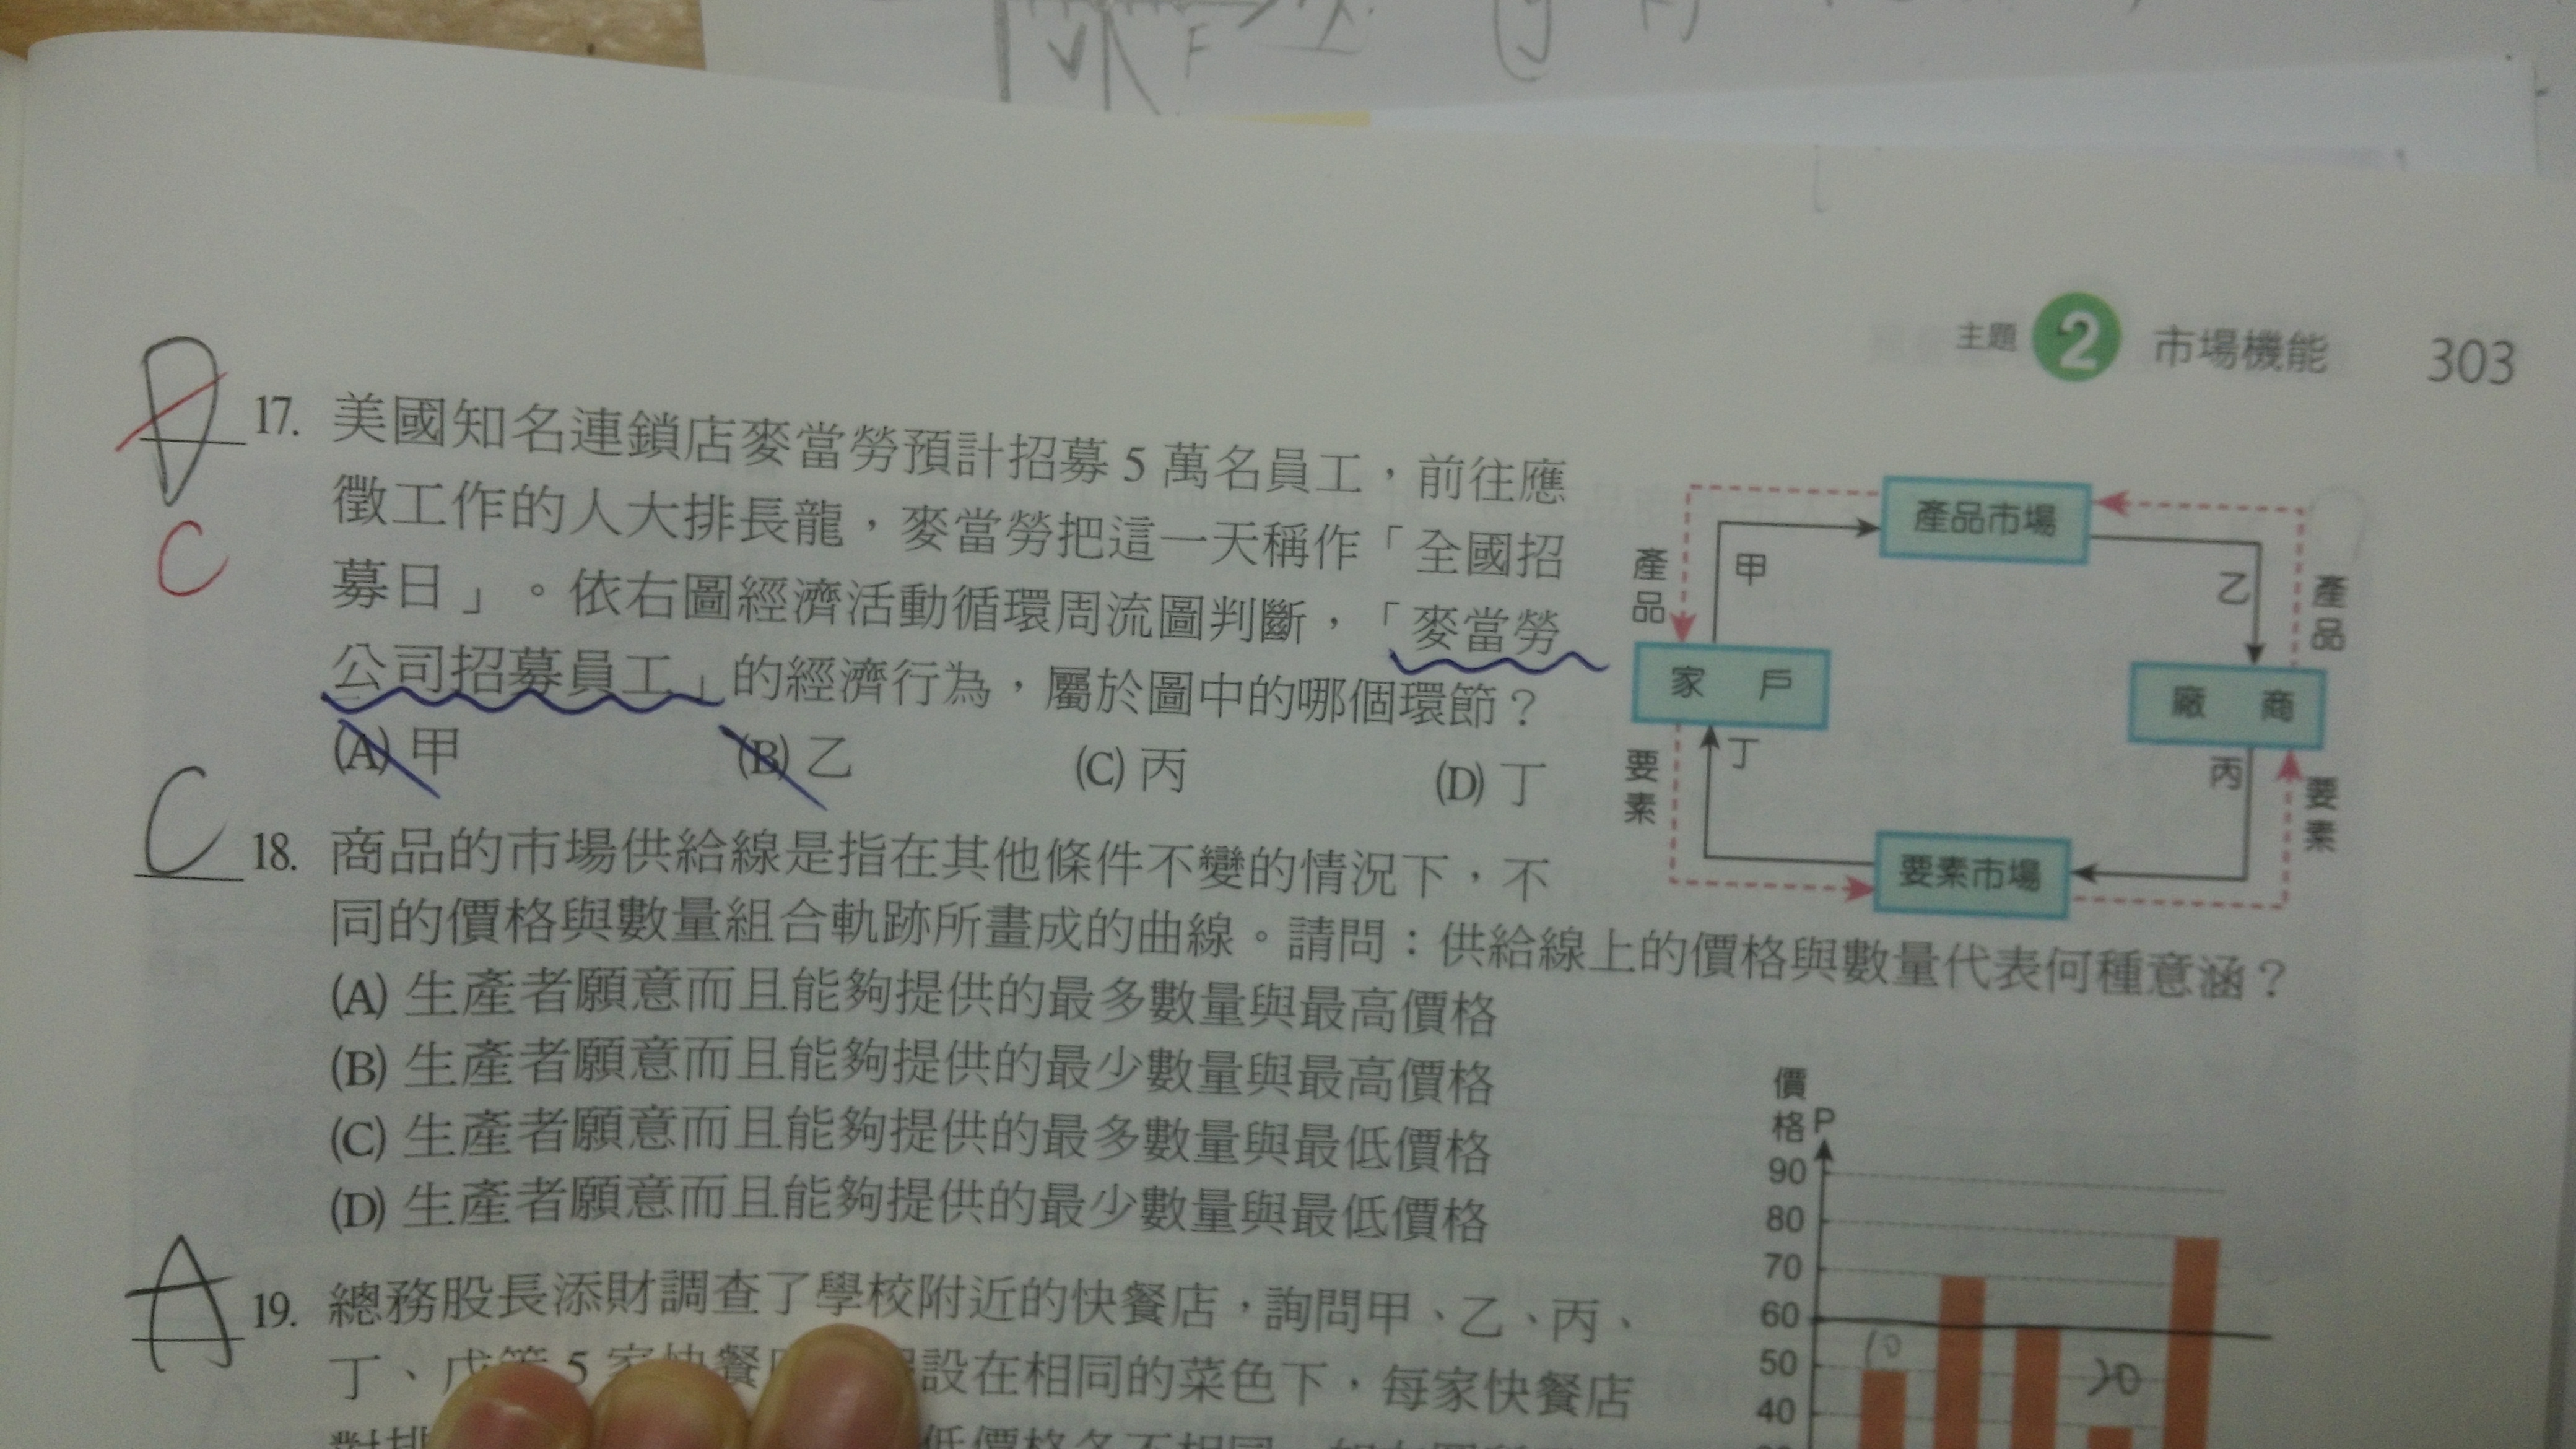 主題 2 市場機能 303
D
C
17. 美國知名連鎖店麥當勞預計招募 5 萬名員工，前往應
徵工作的人大排長龍，麥當勞把這一天稱作「全國招
募日」。依右圖經濟活動循環周流圖判斷，「麥當勞
公司招募員工」的經濟行為，屬於圖中的哪個環節？
(A) 甲 (B) 乙 (C) 丙 (D) 丁
產品市場
甲
乙
產品
產品
家 戶
廠 商
丁
丙
要素
要素
要素市場
C
18. 商品的市場供給線是指在其他條件不變的情況下，不
同的價格與數量組合軌跡所畫成的曲線。請問：供給線上的價格與數量代表何種意涵？
(A) 生產者願意而且能夠提供的最多數量與最高價格
(B) 生產者願意而且能夠提供的最少數量與最高價格
(C) 生產者願意而且能夠提供的最多數量與最低價格
(D) 生產者願意而且能夠提供的最少數量與最低價格
A
19. 總務股長添財調查了學校附近的快餐店，詢問甲、乙、丙、
丁、戊等 5 家快餐店 設在相同的菜色下，每家快餐店
低價格各不相同
價格 P
90
80
70
60
50
40
10
20